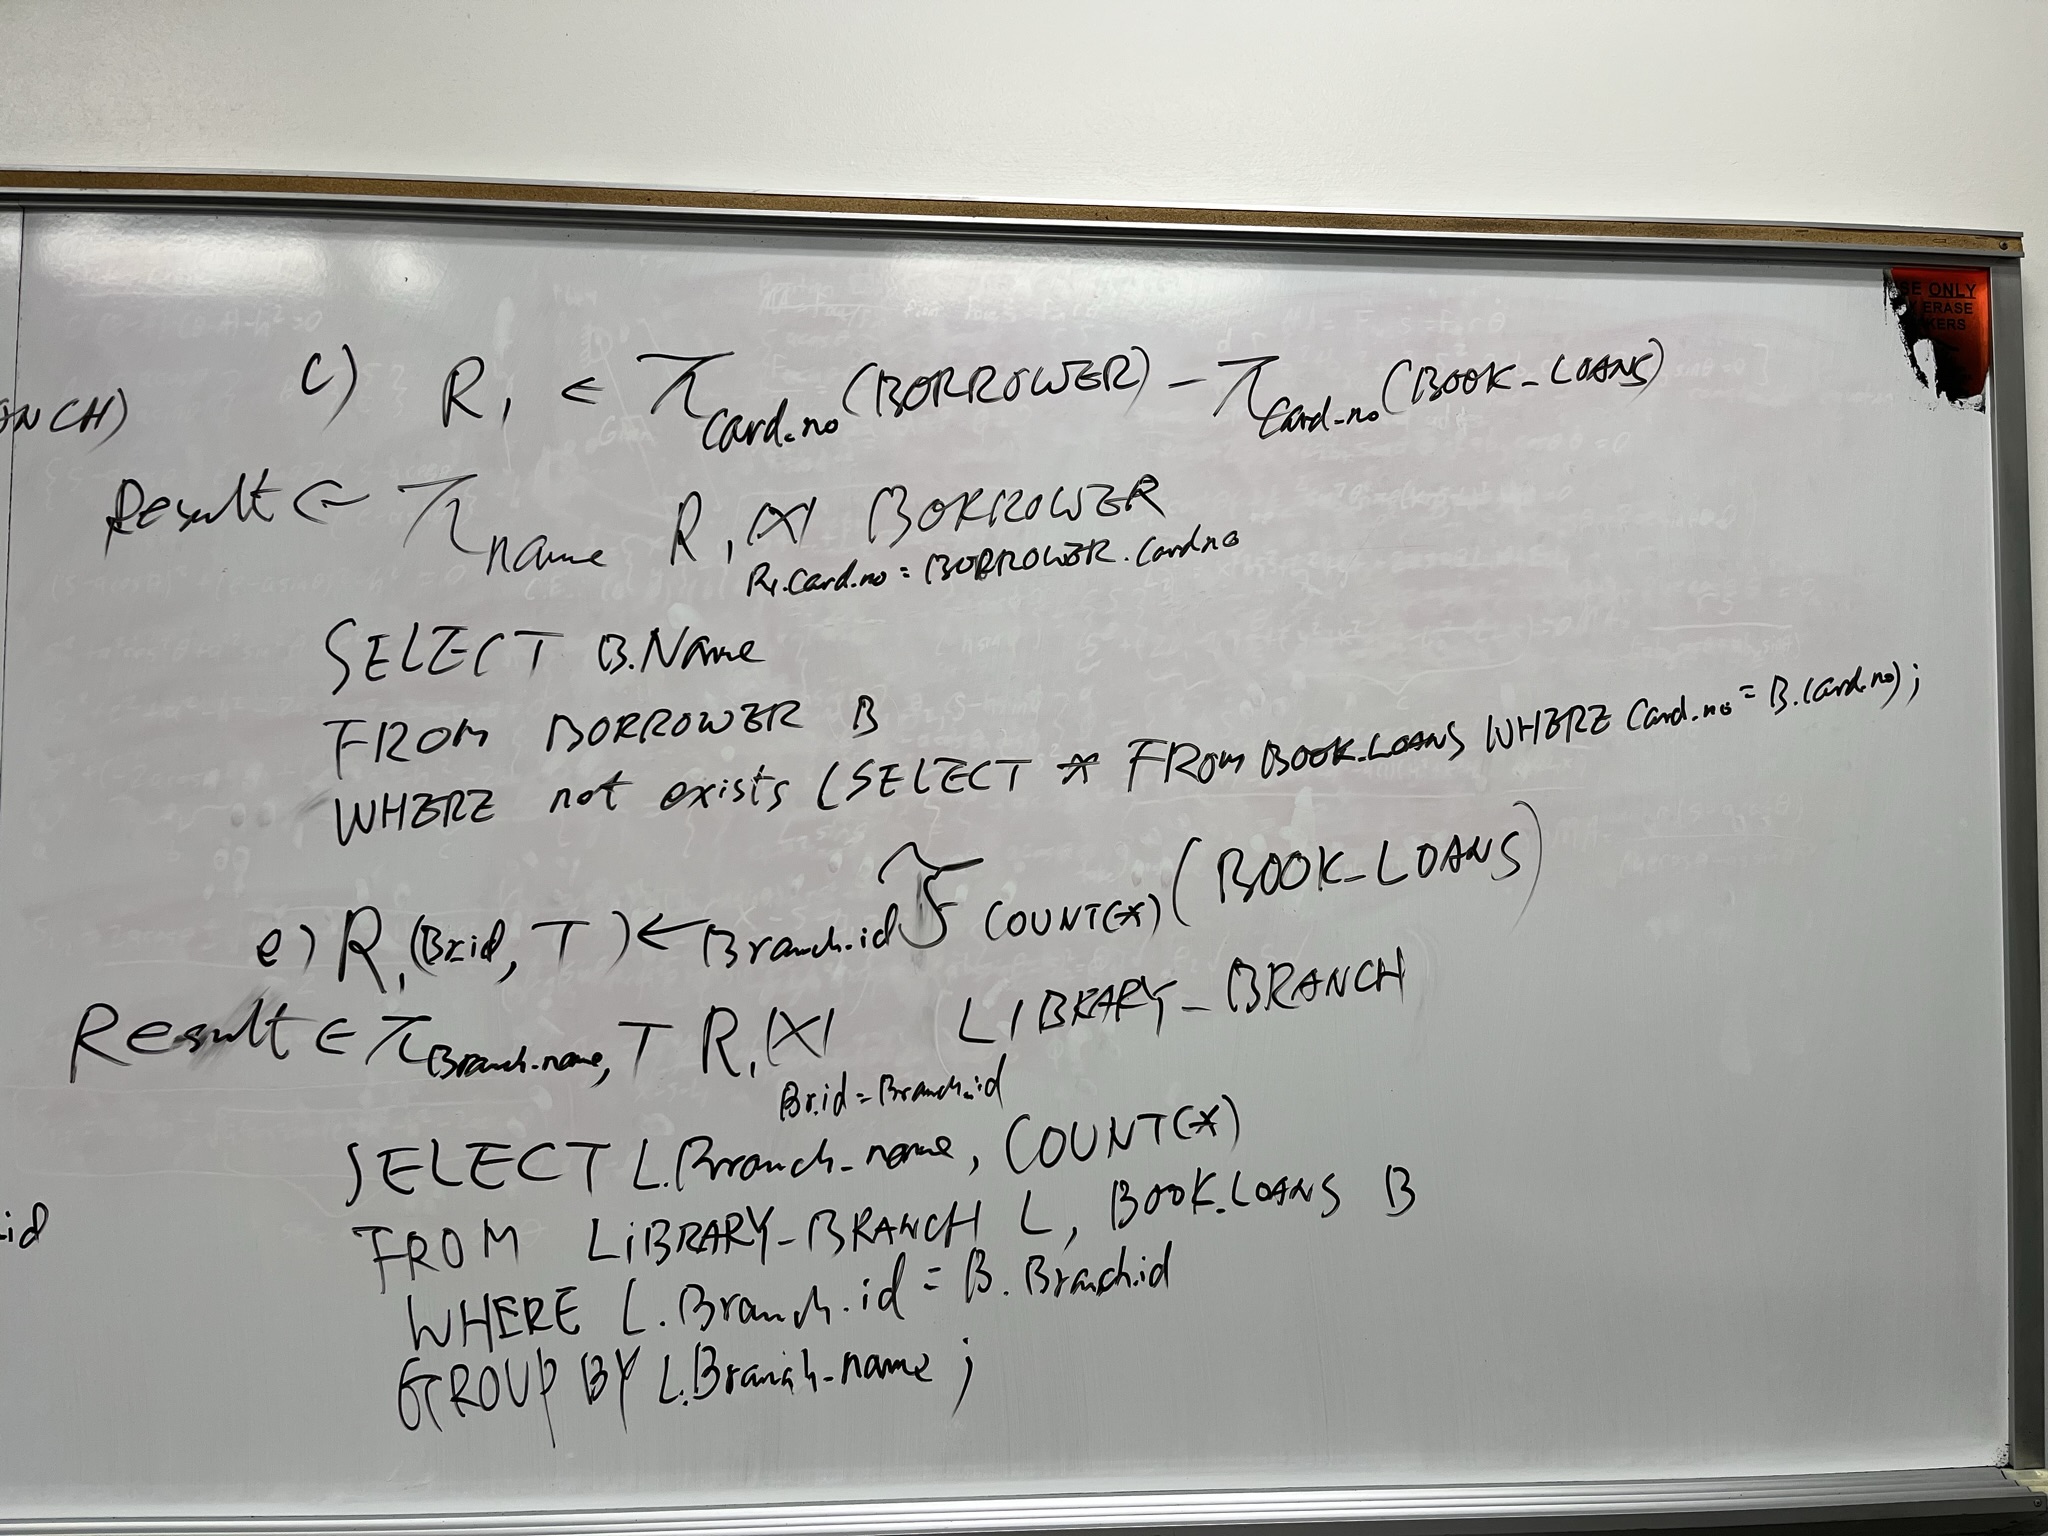 ANCH)
c) R₁ ← π Card_no (BORROWER) - π Card_no (BOOK_LOANS)
Result ← π name R₁ ⋈ BORROWER
R₁.Card_no = BORROWER.Card_no
SELECT B.Name
FROM BORROWER B
WHERE not exists (SELECT * FROM BOOK_LOANS WHERE Card_no = B.Card_no);
e) R₁(Br_id, T) ← Branch_id ℱ COUNT(*) (BOOK_LOANS)
Result ← π Branch_name, T R₁ ⋈ LIBRARY_BRANCH
Br_id = Branch_id
SELECT L.Branch_name, COUNT(*)
FROM LIBRARY_BRANCH L, BOOK_LOANS B
WHERE L.Branch_id = B.Branch_id
GROUP BY L.Branch_name;
id
SE ONLY
ERASE
KERS